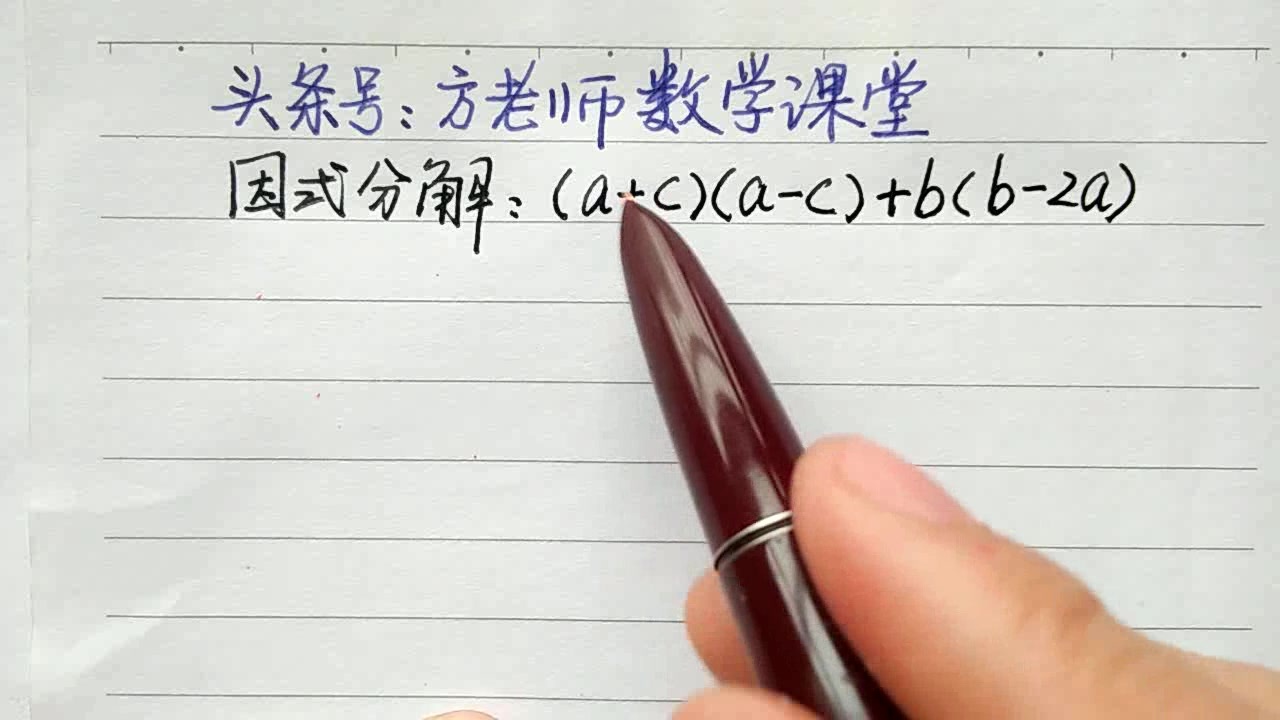 头条号:方老师数学课堂
因式分解:(a+c)(a-c)+b(b-2a)